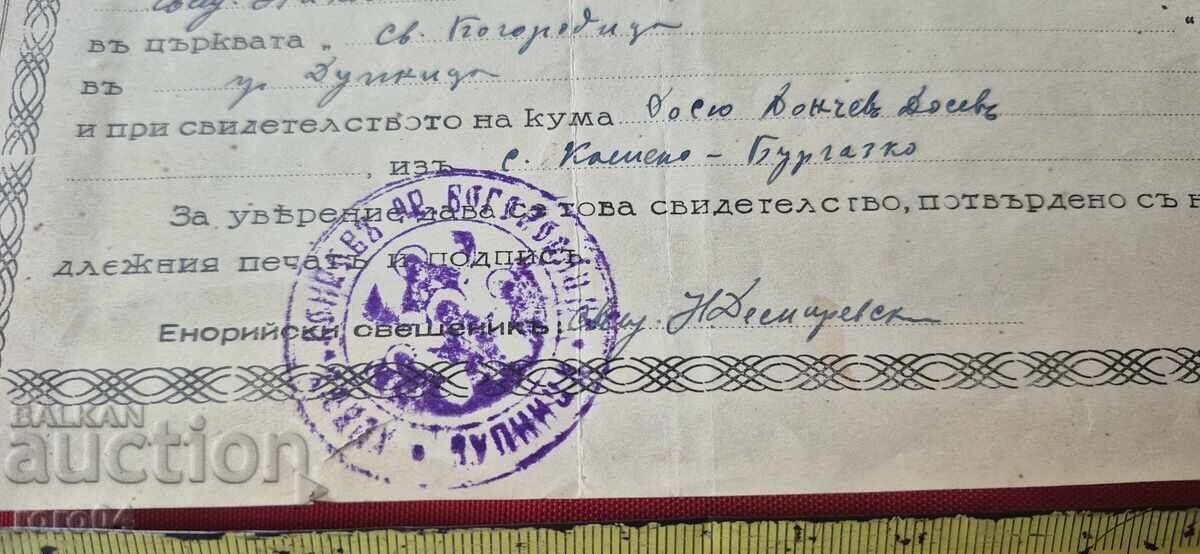 въ църквата „ Св. Богородица "
въ гр. Дупница
и при свидетелството на кума Досю Дончевъ Досевъ
, изъ с. Камено - Бургазко
За увѣрение дава се това свидетелство, потвърдено съ н
длежния печатъ и подпись.
Енорийски свещеникъ: Свещ. Н.
BALKAN
auction
roro04